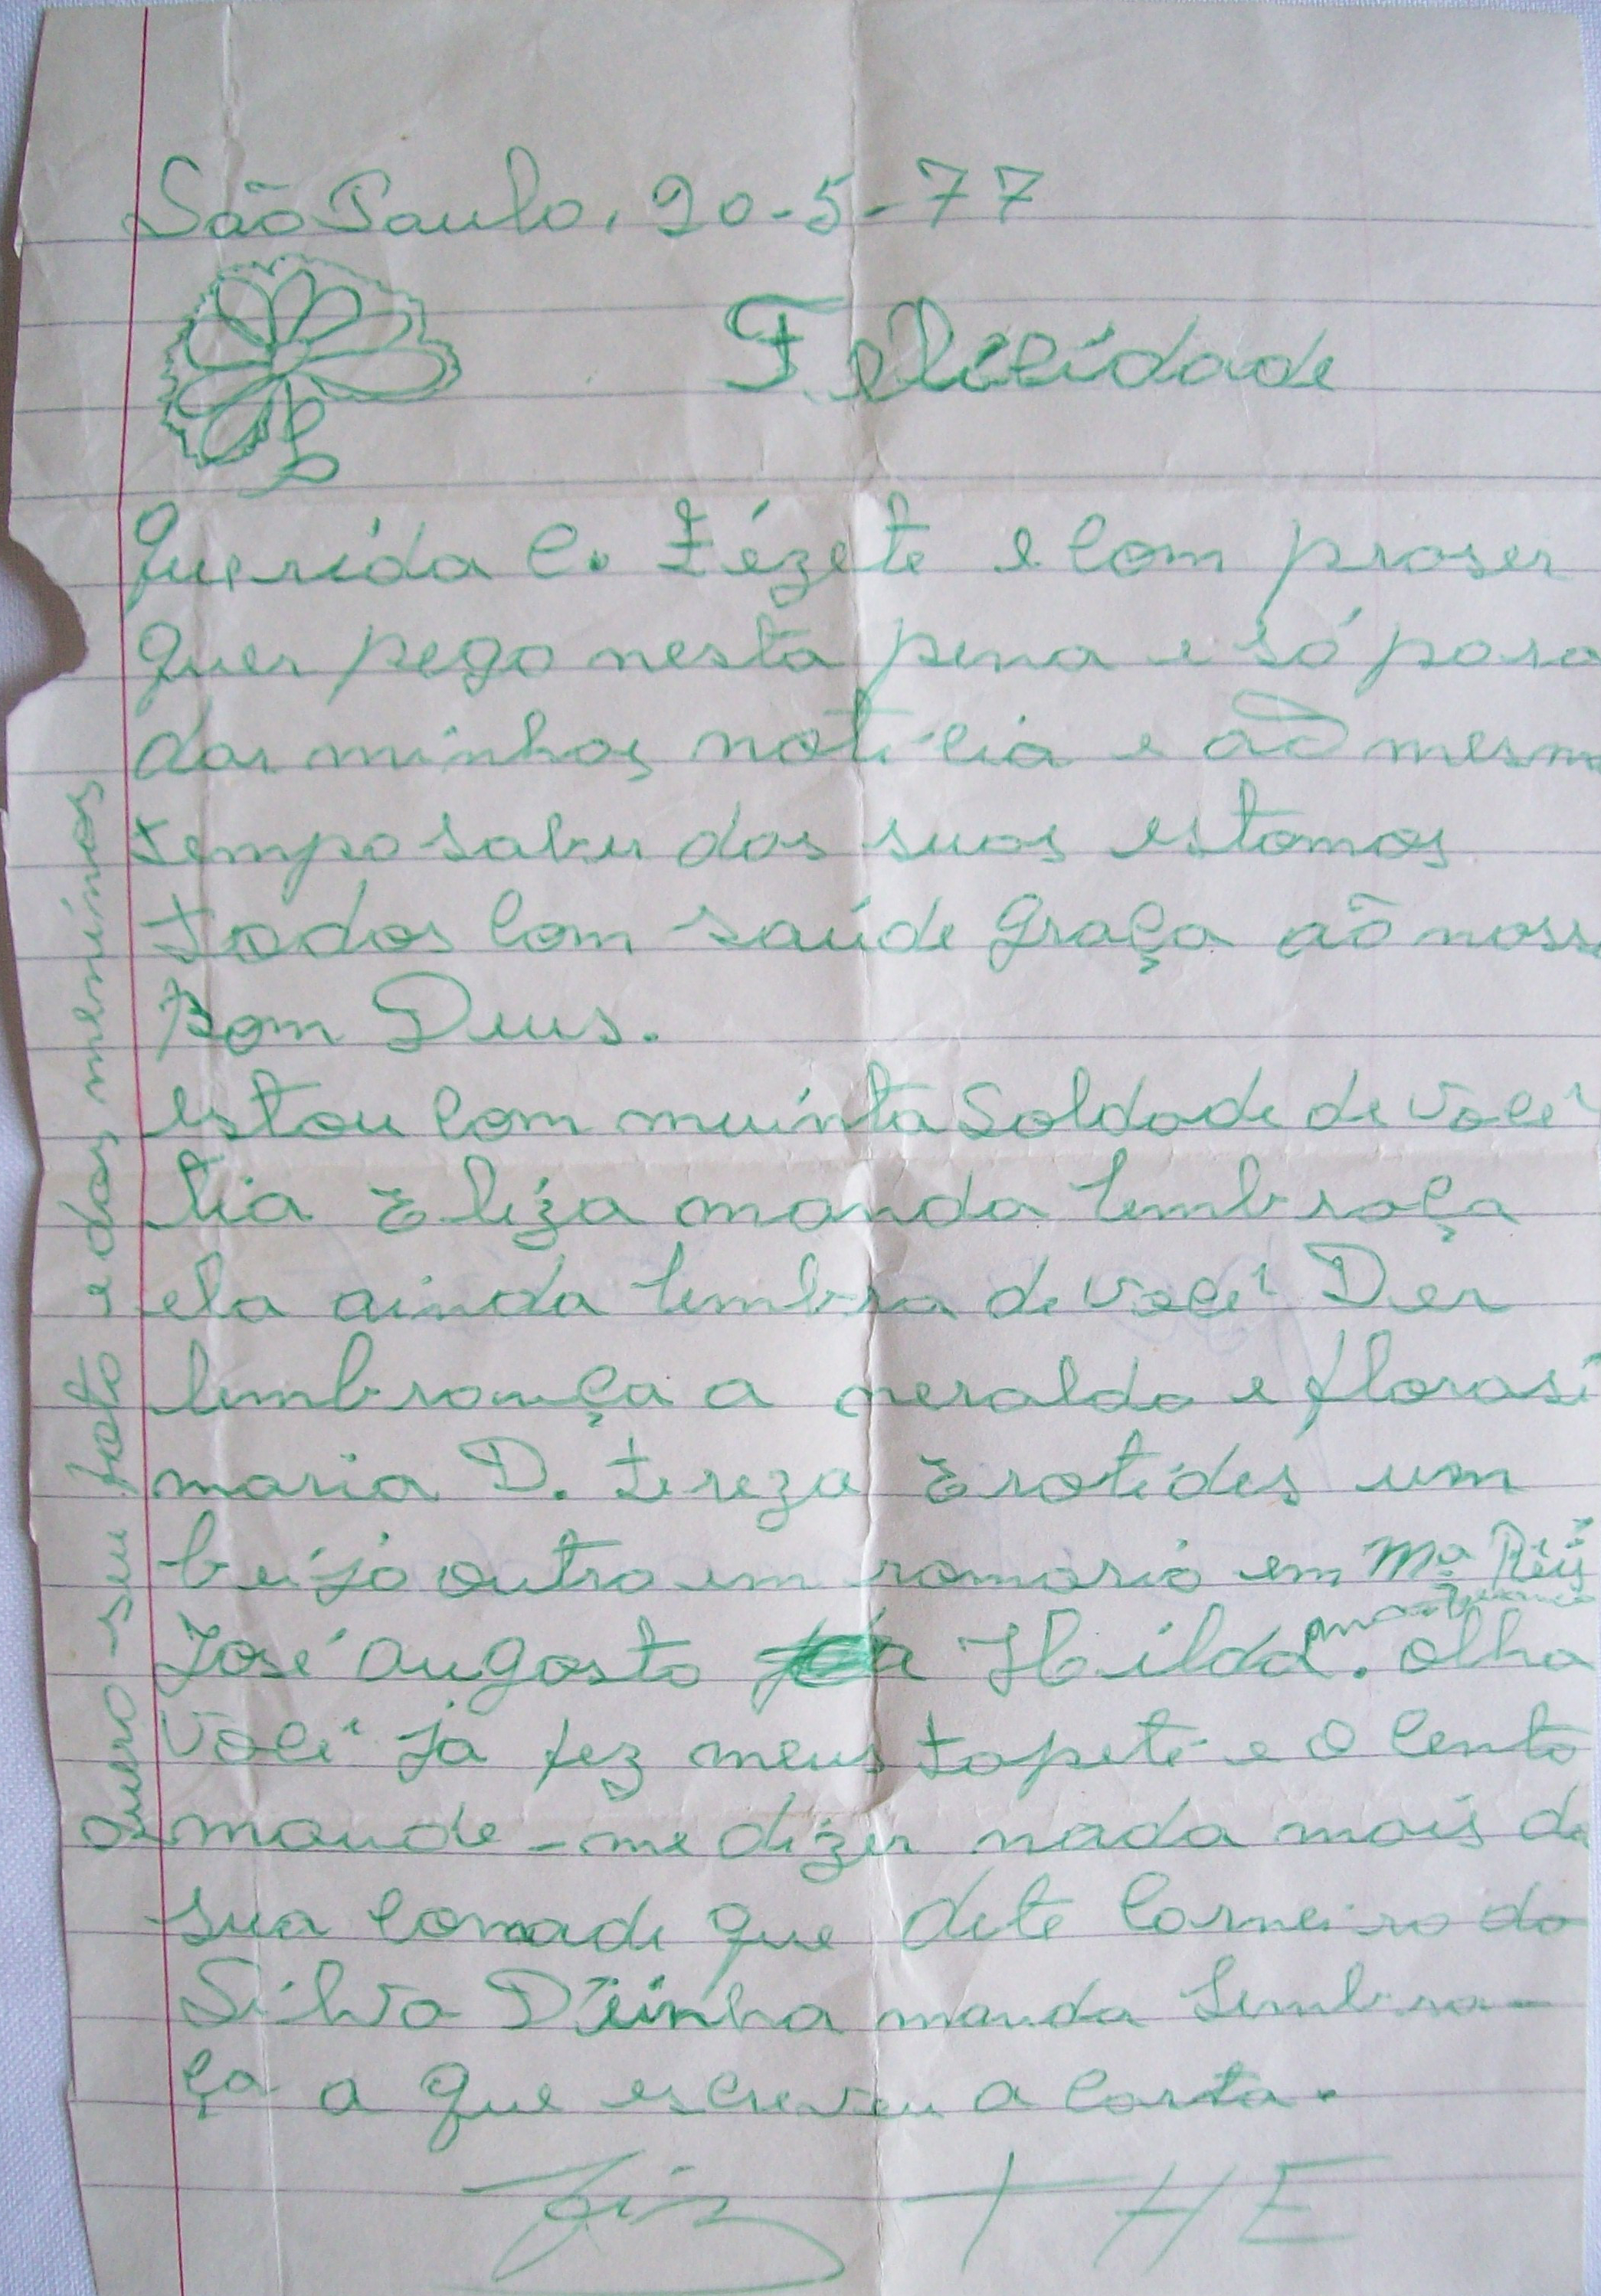 São Paulo, 20-5-77
Felicidade
Querida C. Zézete e com praser
quer pego nesta pena e só para
dar minhas noticia e aõ mesm
tempo saber das suas estamos
todos com saúde graça aõ noss
Bom Deus.
estou com muinta Soldade de você
tia Eliza manda lembraça
ela ainda lembra de você Der
lembrança a neralda e florasi
maria D. tereza Erotides um
beijo outro em romario em Mª
José augosto Hilda. olha
você já fez meus tapete e o Cento
mande-me dizer nada mais da
sua comade que dete Carneiro da
Silva Deinha manda Lembra-
ça a que escreveu a carta.
THE
quero-seu foto e dos meninos